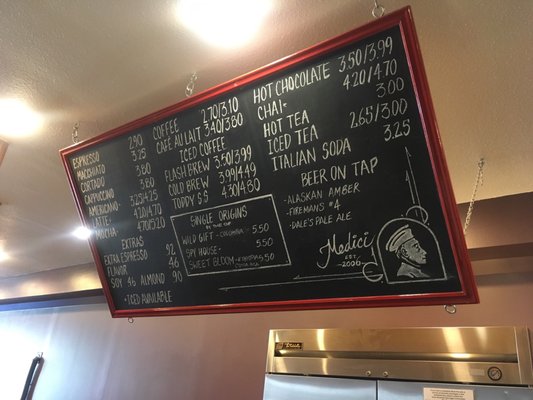 ESPRESSO 2.90
MACCHIATO 3.25
CORTADO 3.80
CAPPUCCINO 3.80
AMERICANO 3.25/4.25
LATTE 4.20/4.70
MOCHA 4.70/5.20
EXTRAS
EXTRA ESPRESSO 92
FLAVOR 46
SOY 46 ALMOND 90
*ICED AVAILABLE
COFFEE 2.70/3.10
CAFE AU LAIT 3.40/3.80
ICED COFFEE
FLASH BREW 3.50/3.99
COLD BREW 3.99/4.49
TODDY 5.5 4.30/4.80
SINGLE ORIGINS
BY THE CUP
WILD GIFT - COLOMBIA 5.50
SPY HOUSE - 5.50
SWEET BLOOM -
HOT CHOCOLATE 3.50/3.99
CHAI* 4.20/4.70
HOT TEA 3.00
ICED TEA 2.65/3.00
ITALIAN SODA 3.25
BEER ON TAP
- ALASKAN AMBER
- FIREMANS #4
- DALE'S PALE ALE
Medici
EST.
2006
True